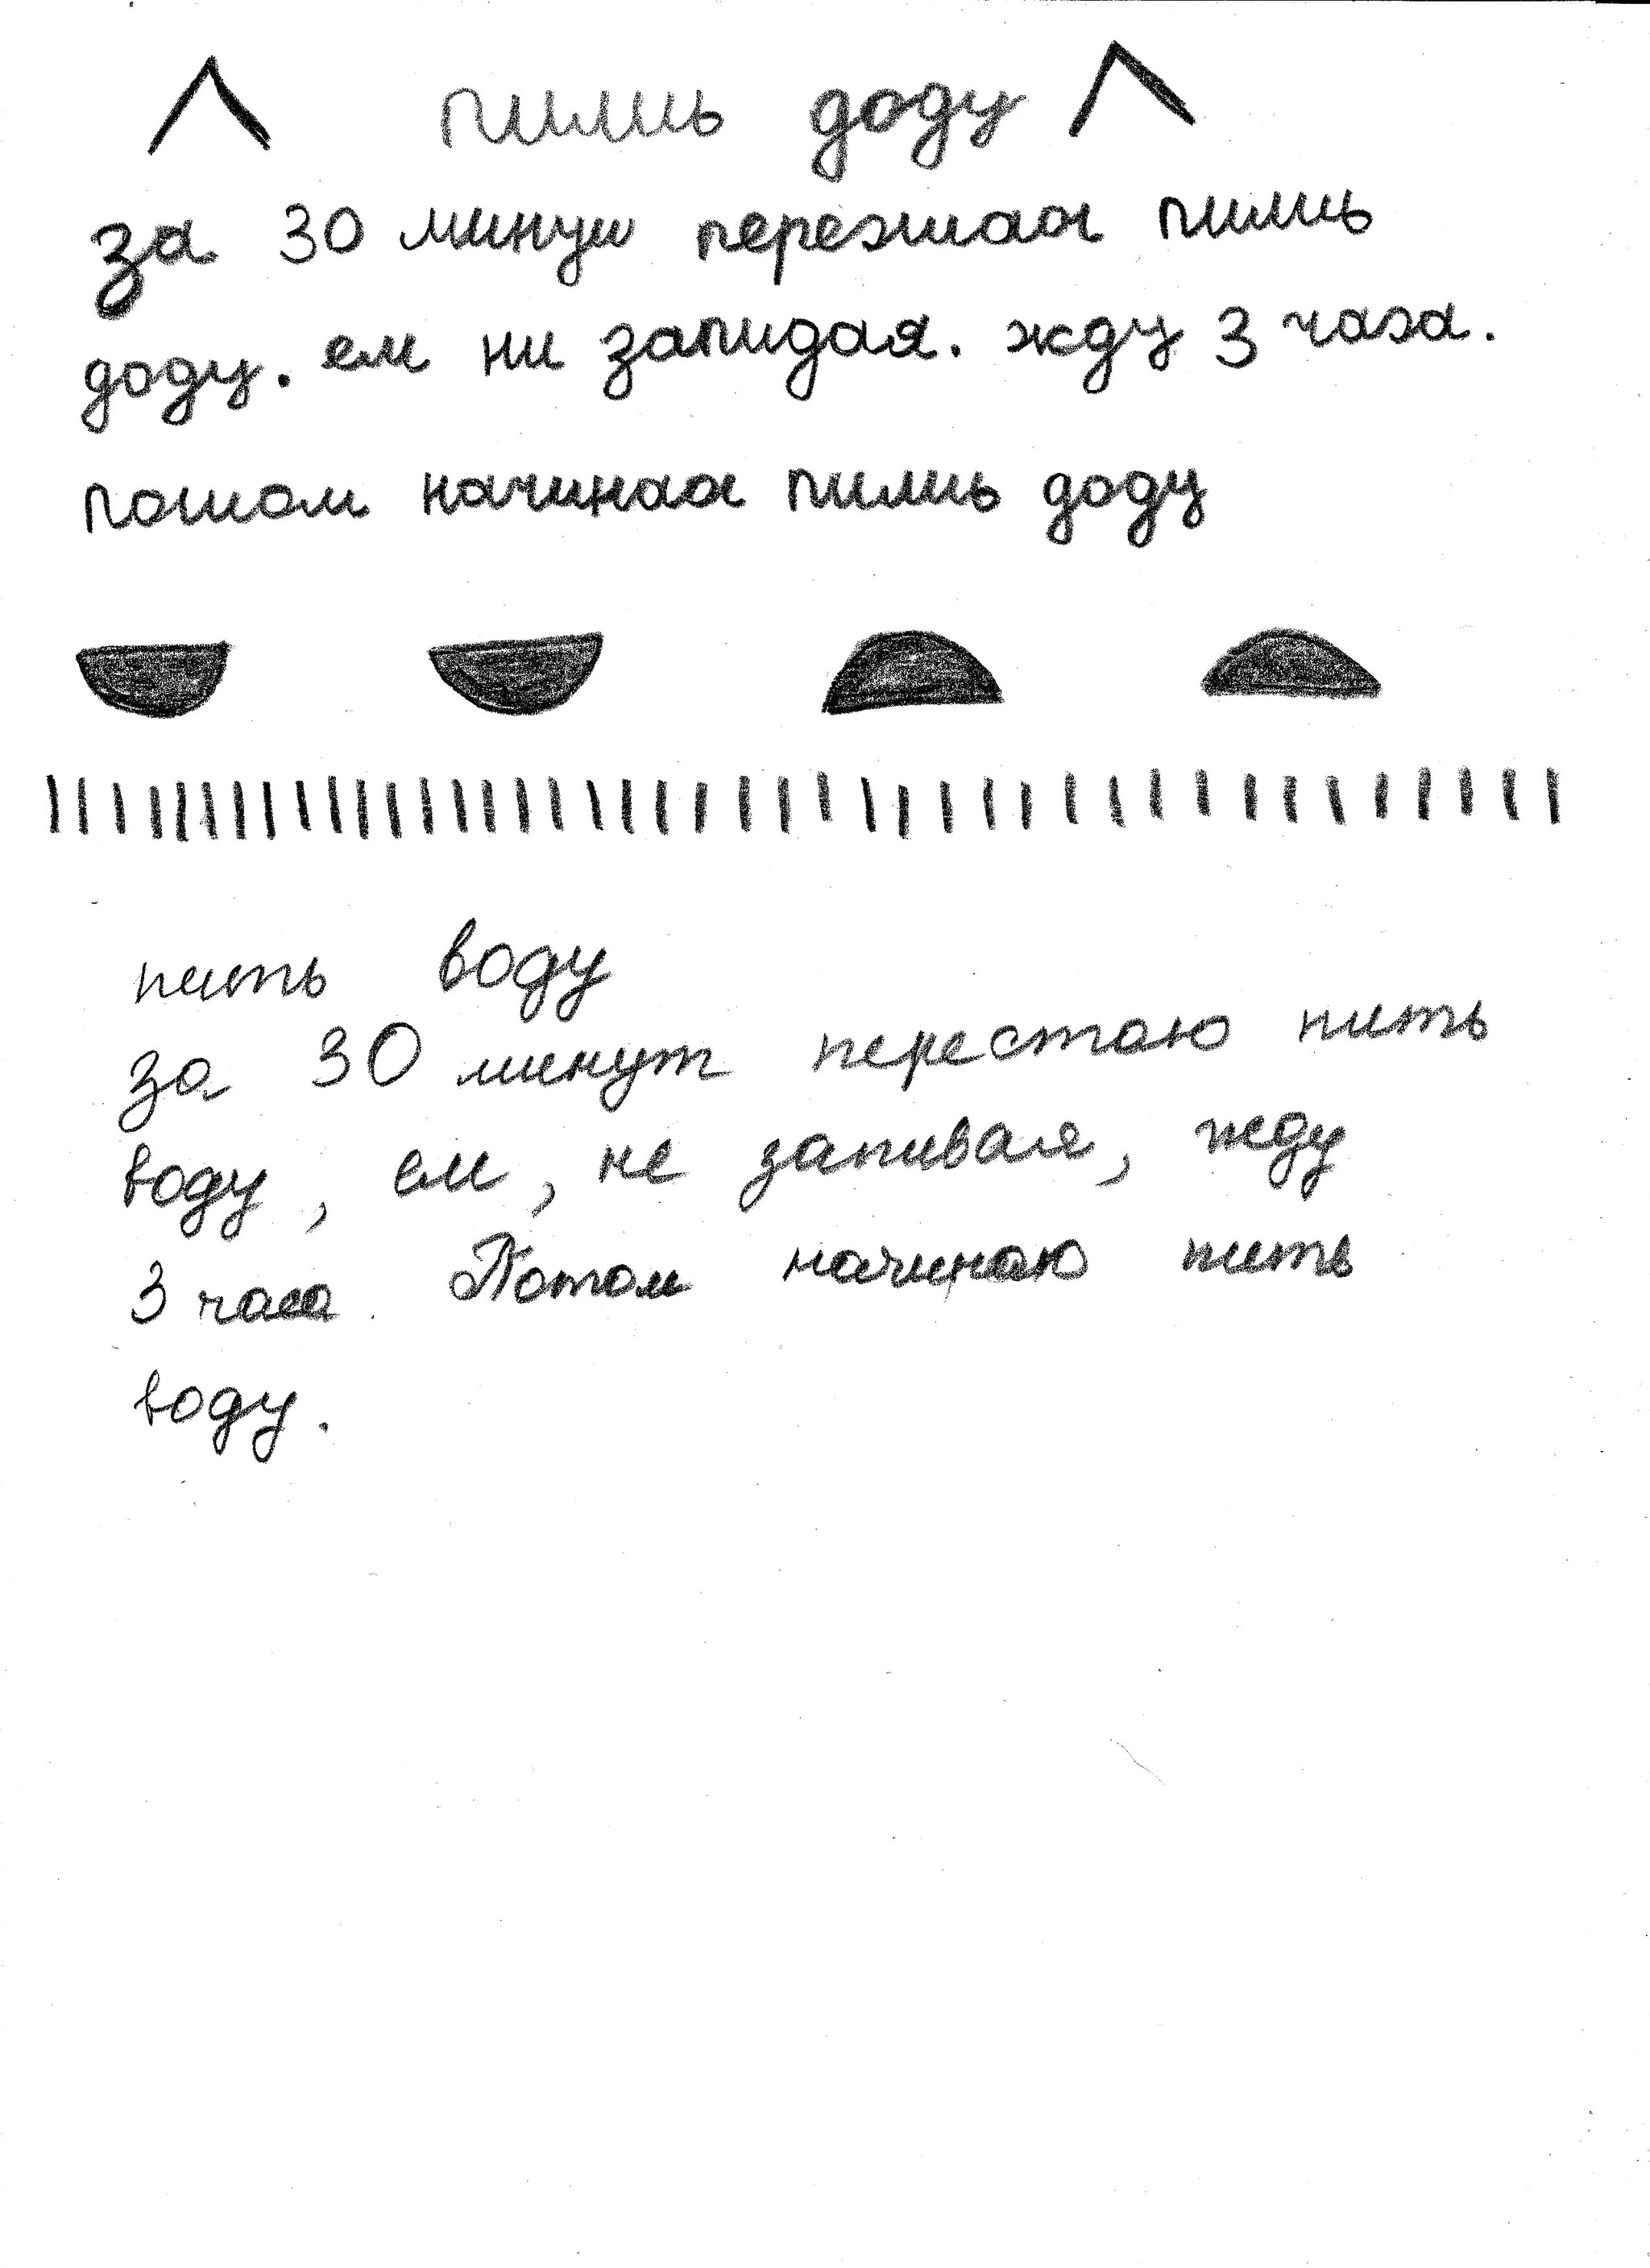 пимь доду
за 30 минуш перезшаа пимь
доду. ем ни запидая. жду 3 часа.
пошом начинаа пимь доду
пить воду
за 30 минут перестаю пить
воду, ем, не запивая, жду
3 часа. Потом начинаю пить
воду.